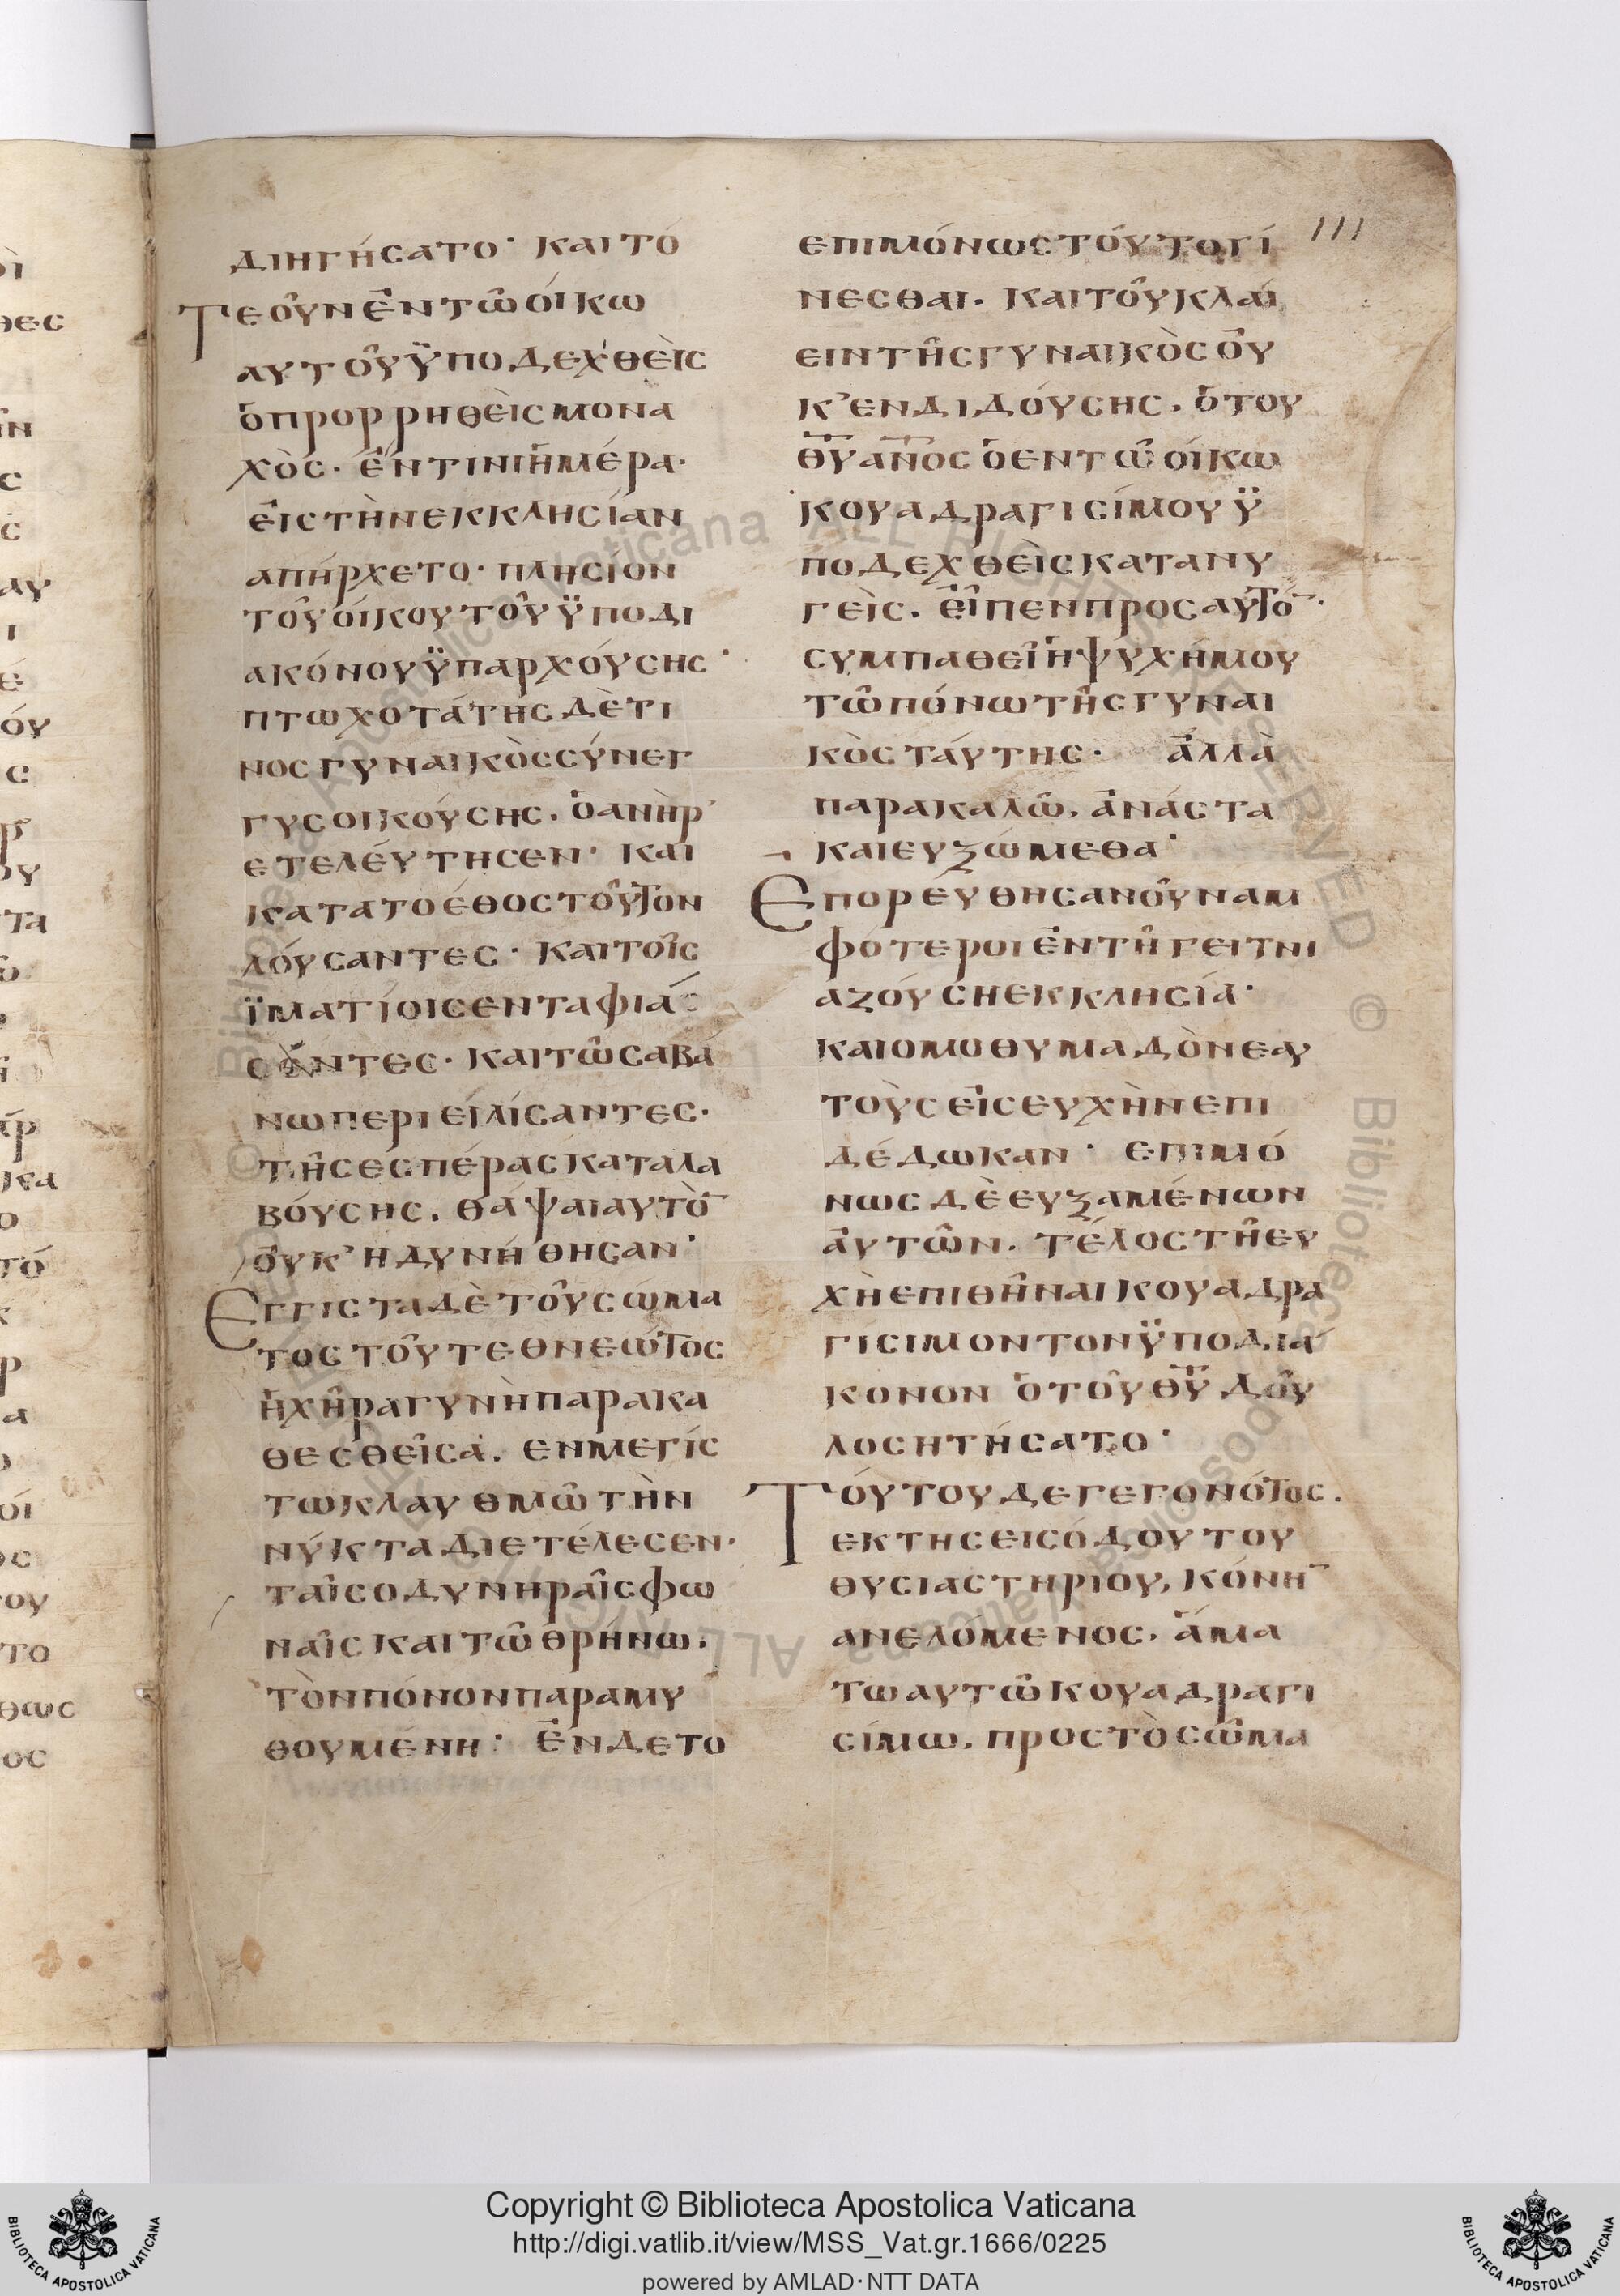 111
διηγήσατο· και τό
τε οὖν ἐν τῶ οίκω
αυτοῦ ϋποδεχθεὶς
ὁ προρρηθεὶς μονα
χὸς· ἔν τινι ἡμέρα·
εἰς τὴν εκκλησίαν
απήρχετο· πλησίον
τοῦ οίκου τοῦ ϋποδι
ακόνου ϋπαρχούσης·
πτωχοτάτης δὲ τι
νος γυναικὸς σύνεγ
γυς οικούσης. ὁ ανὴρ
ετελέυτησεν· και
κατα το έθος τοῦτον
λόυσαντες· και τοῖς
ϊματίοις ενταφιά
σαντες· και τῶ σαβά
νω περιειλίσαντες·
τῆς εσπέρας καταλα
βόυσης. θάψαι αυτὸ̅
ουκ' ηδυνήθησαν·
Εγγιστα δὲ τοῦ σώμα
τος τοῦ τεθνεώτος
ἡ χῆρα γυνὴ παρακα
θεσθεῖσα. εν μεγίσ
τω κλαυθμῶ τὴν
νύκτα διετέλεσεν·
ταῖς οδυνηραῖς φω
ναῖς και τῶ θρήνω.
τὸν πόνον παραμυ
θουμένη· Ἐν δε το
επιμόνως τοῦτο γί
νεσθαι. και τοῦ κλαί
ειν τῆς γυναικὸς οὐ
κ' ενδιδόυσης. ὁ του
θ̅υ̅ α̅ν̅ο̅ς ὁ εν τῶ οίκω
κουαδραγισίμου ϋ
ποδεχθεὶς κατανυ
γεὶς. εἶπεν προς αυτό̅·
συμπαθεῖ ἡ ψυχή μου
τῶ πόνω τῆς γυναι
κὸς τάυτης· ἀλλὰ
παρακαλῶ, ἀνάστα
και ευξώμεθα·
Επορέυθησαν οῦν αμ
φότεροι ἐν τῆ γειτνι
αζόυση εκκλησία·
και ομοθυμαδὸν εαυ
τοὺς εἰς ευχὴν επι
δέδωκαν· επιμό
νως δὲ ευξαμένων
ἀυτῶν. τέλος τῆ ευ
χῆ επιθῆναι κουαδρα
γισιμον τον ϋποδιά
κονον ὁ τοῦ θ̅υ̅ δοῦ
λος ητήσατο·
Τόυτου δε γεγονότος.
εκ της εισόδου του
θυσιαστηριου, κόνη̅
ανελόμενος. ἅμα
τω αυτῶ κουαδραγι
σίμω. προς τὸ σῶμα
Copyright © Biblioteca Apostolica Vaticana
http://digi.vatlib.it/view/MSS_Vat.gr.1666/0225
powered by AMLAD·NTT DATA